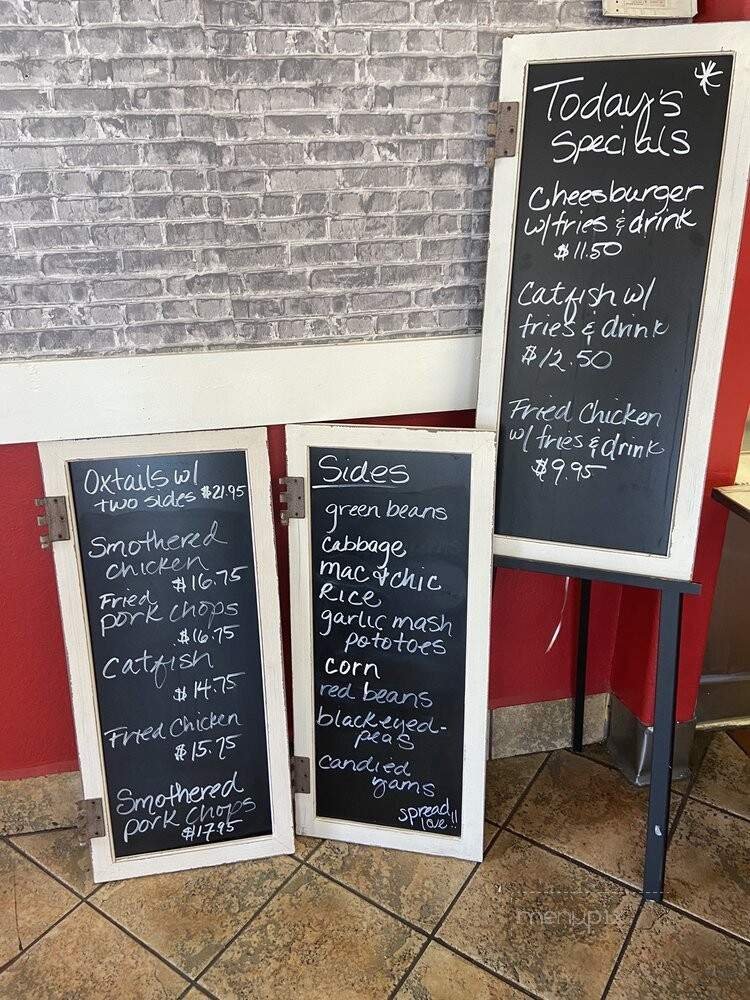 Today's
Specials
Cheesburger
w/fries & drink
$11.50
Catfish w/
fries & drink
$12.50
Fried Chicken
w/ fries & drink
$9.95
Oxtails w/
two sides $21.95
Smothered
chicken
$16.75
Fried
pork chops
$16.75
Catfish
$14.75
Fried Chicken
$15.75
Smothered
pork chops
$17.95
Sides
green beans
Cabbage
mac & chic
Rice
garlic mash
pototoes
corn
red beans
blackeyed-
peas
candied
yams
spread
love!!
menupix